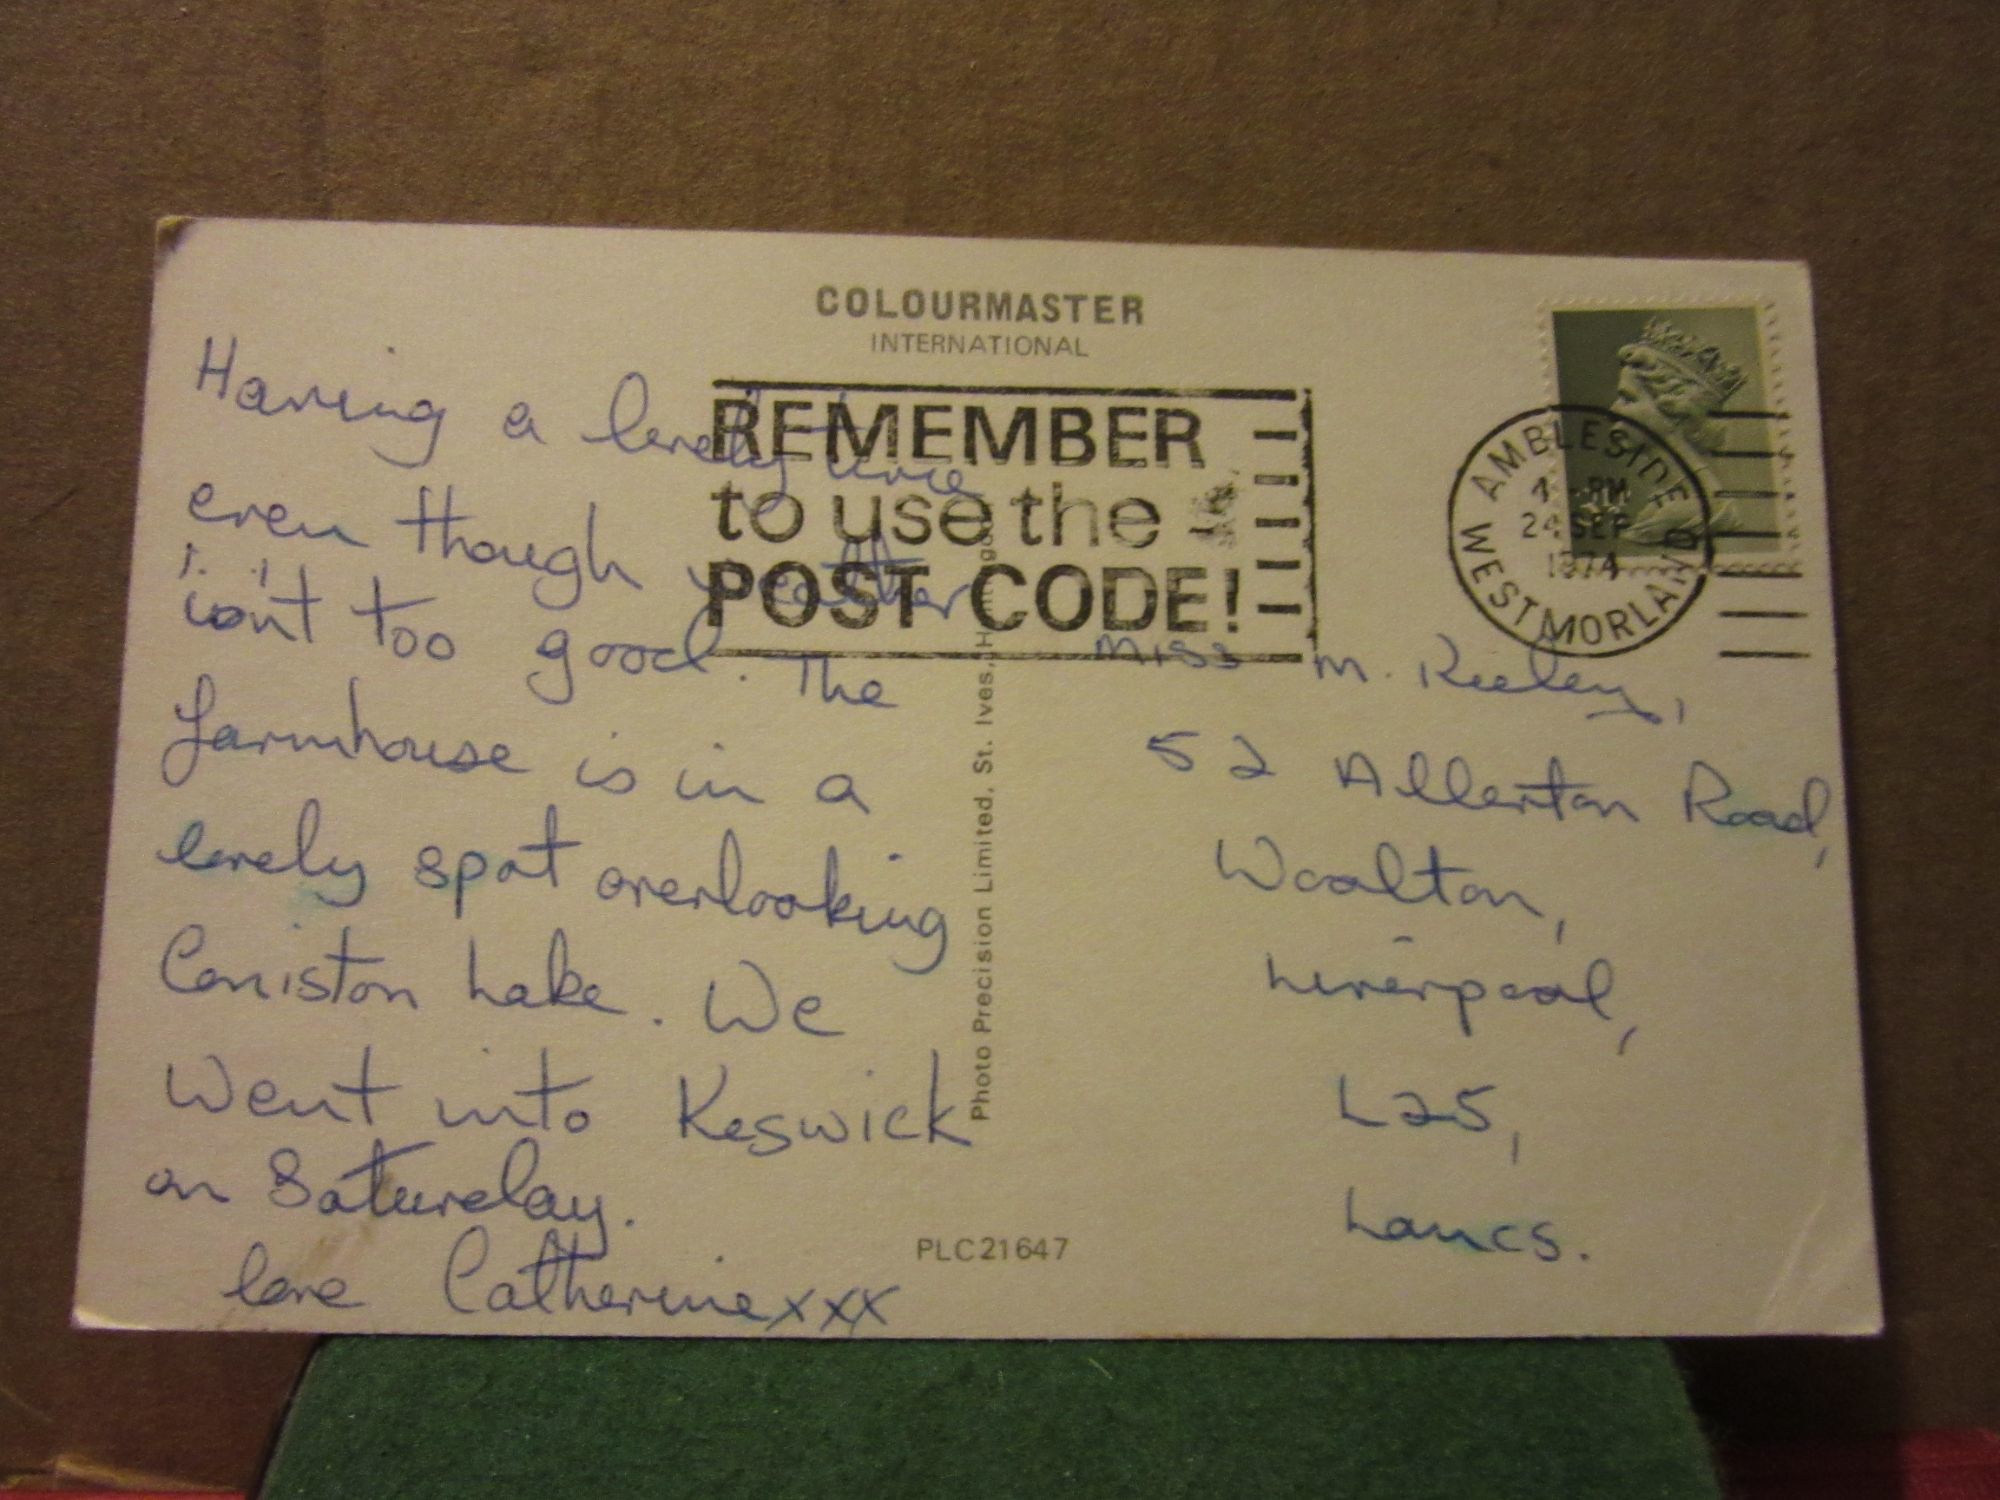 COLOURMASTER
INTERNATIONAL
REMEMBER
to use the
POST CODE!
AMBLESIDE
PM
24 SEP
1974
WESTMORLAND
Having a lovely time
even though weather
isn't too good. The
farmhouse is in a
lovely spot overlooking
Coniston Lake. We
went into Keswick
on Saturday.
love Catherine xxx
Photo Precision Limited, St. Ives,
PLC21647
Miss M. Keeley,
52 Allerton Road,
Woolton,
Liverpool,
L25,
Lancs.